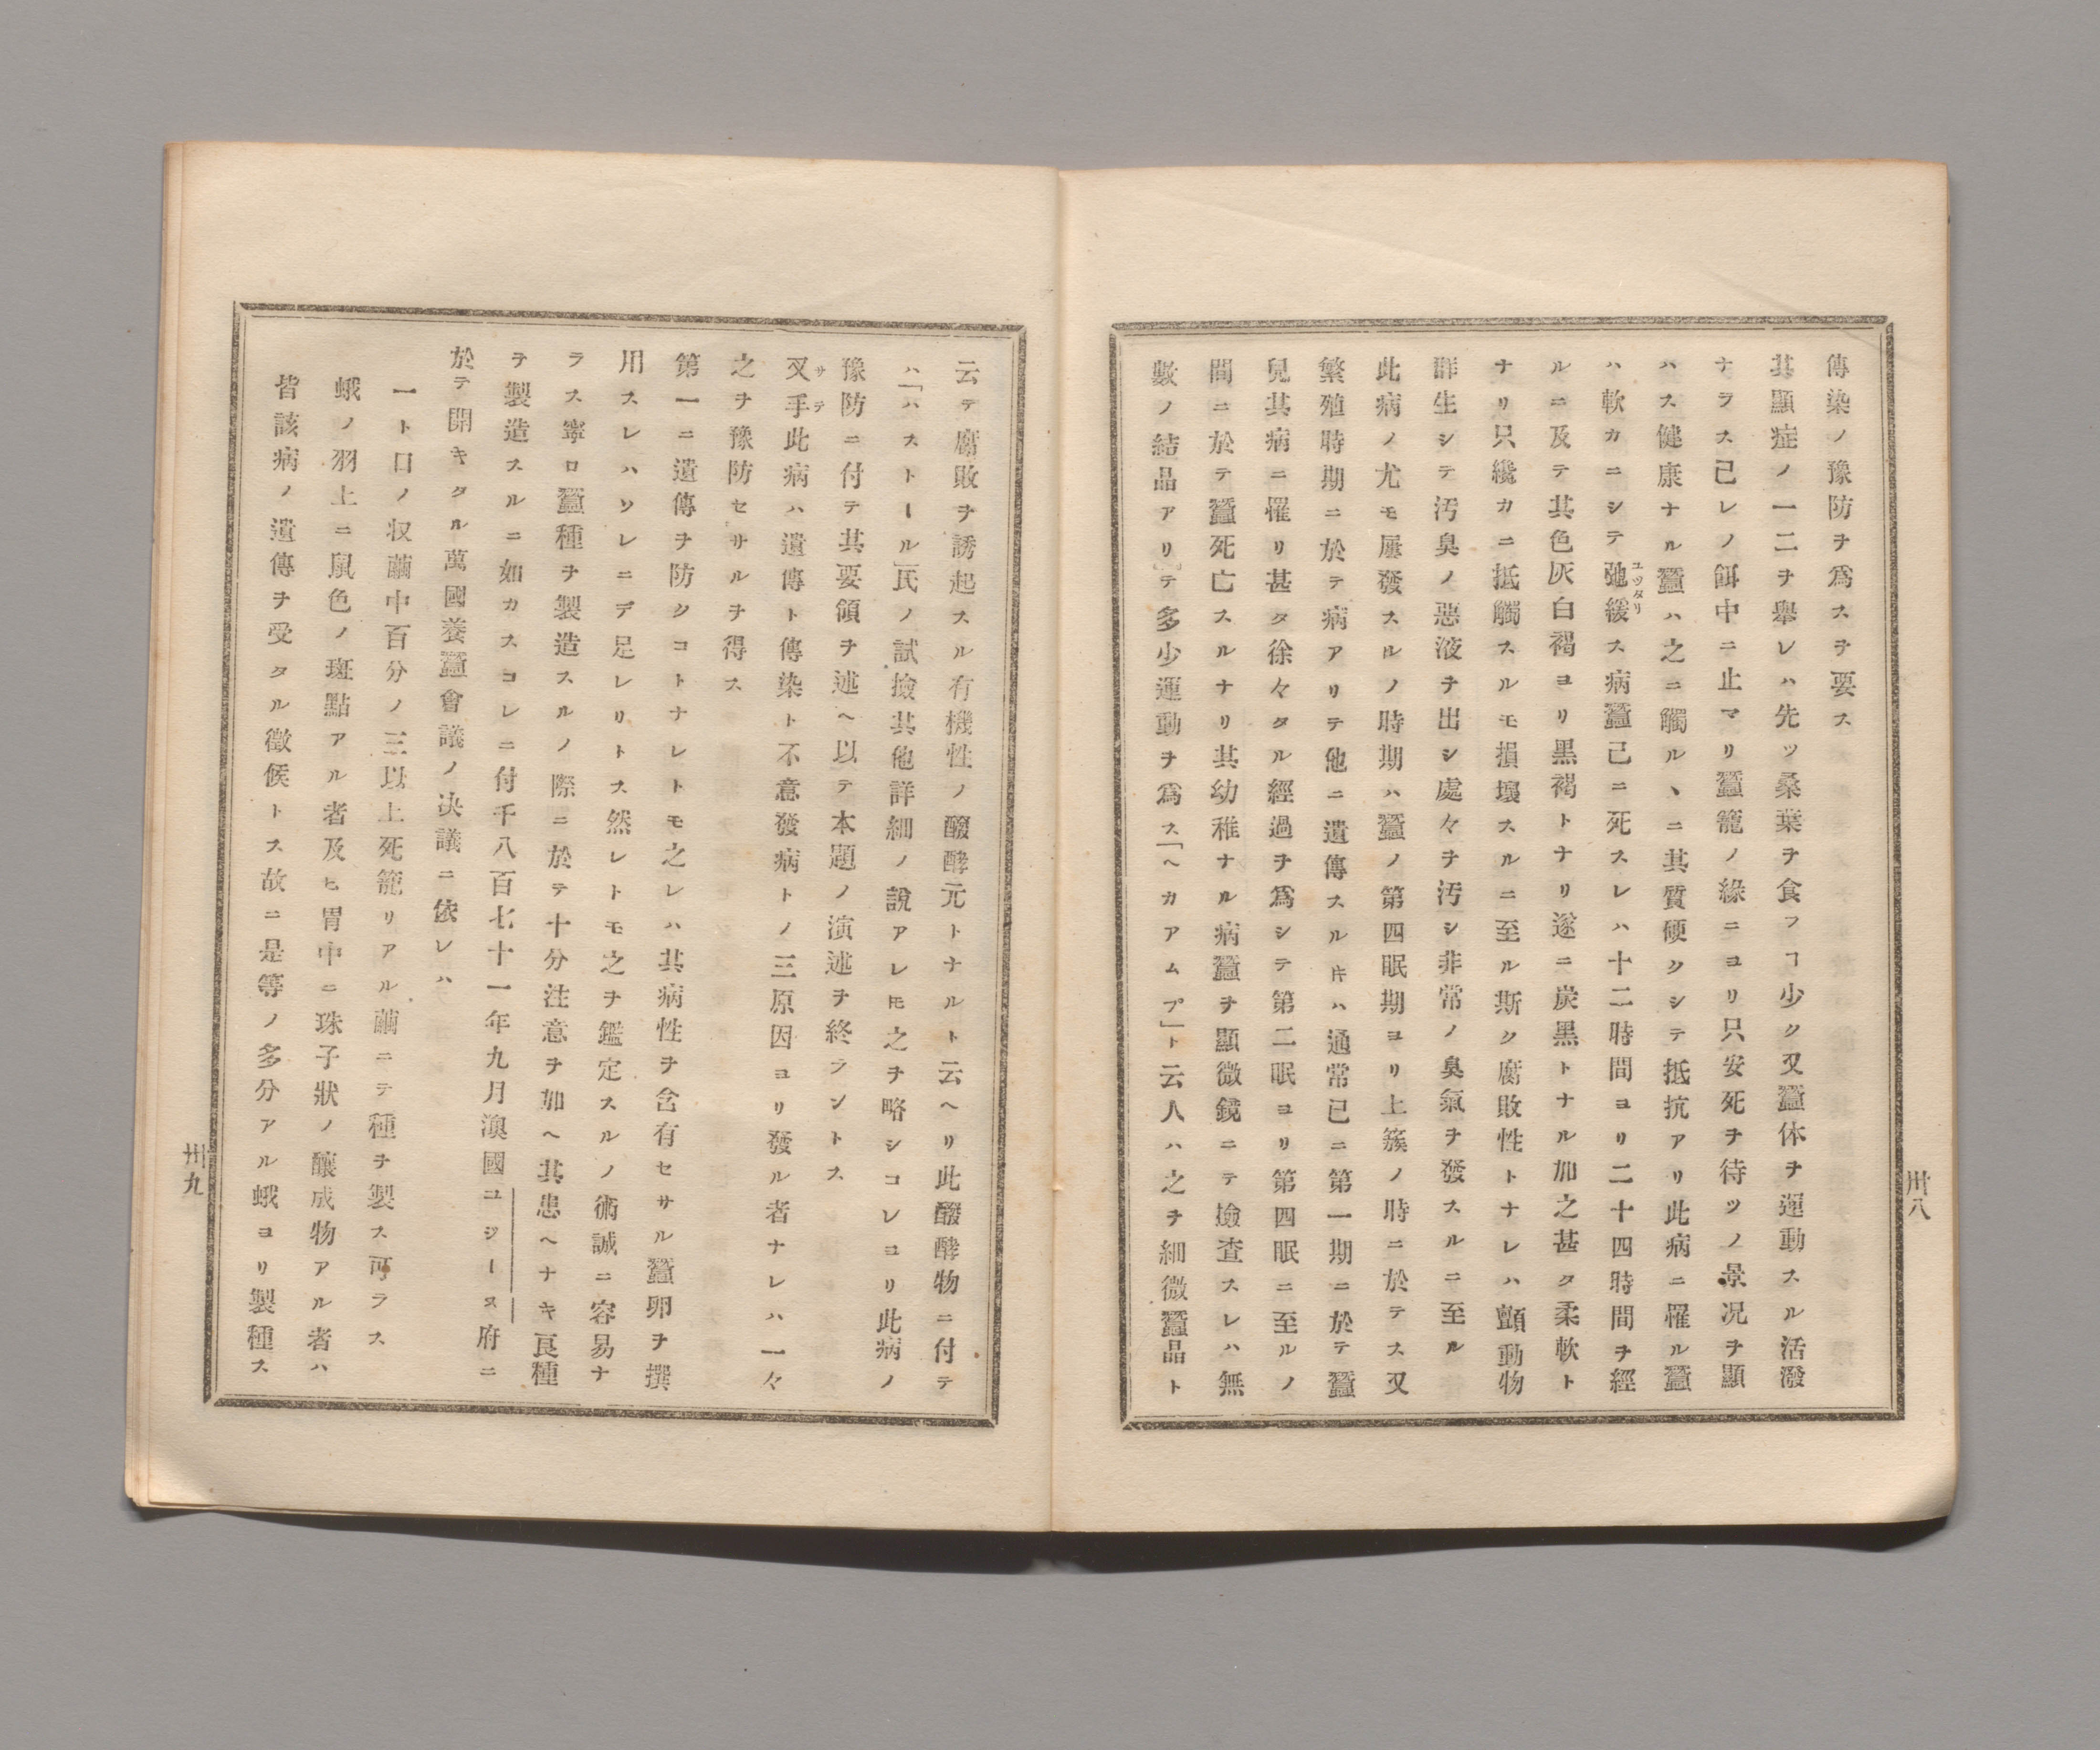 傳染ノ豫防ヲ爲スヲ要ス
其顯症ノ一二ヲ舉レハ先ツ桑葉ヲ食フヿ少ク又蠶休ヲ運動スル活潑
ナラス己レノ餌中ニ止マリ蠶籠ノ緣ニヨリ只安死ヲ待ツノ景况ヲ顯
ハス健康ナル蠶ハ之ニ觸ルヽニ其質硬クシテ抵抗アリ此病ニ罹ル蠶
ハ軟カニシテ弛緩ス病蠶己ニ死スレハ十二時間ヨリ二十四時間ヲ經
ユッタリ
ルニ及テ其色灰白褐ヨリ黑褐トナリ遂ニ炭黑トナル加之甚タ柔軟ト
ナリ只纔カニ抵觸スルモ損壞スルニ至ル斯ク腐敗性トナレハ顫動物
群生シテ汚臭ノ惡液ヲ出シ處々ヲ汚シ非常ノ臭氣ヲ發スルニ至ル
此病ノ尤モ屢發スルノ時期ハ蠶ノ第四眠期ヨリ上簇ノ時ニ於テス又
繁殖時期ニ於テ病アリテ他ニ遺傳スルキハ通常已ニ第一期ニ於テ蠶
兒其病ニ罹リ甚タ徐々タル經過ヲ爲シテ第二眠ヨリ第四眠ニ至ルノ
間ニ於テ蠶死亡スルナリ其幼稚ナル病蠶ヲ顯微鏡ニテ撿查スレハ無
數ノ結晶アリテ多少運動ヲ爲ス「ヘカアムプ」ト云人ハ之ヲ細微蠶晶ト
卅八
云テ腐敗ヲ誘起スル有機性ノ醱酵元トナルト云ヘリ此醱酵物ニ付テ
ハ「ハストール」民ノ試撿其他詳細ノ說アレ𪜈之ヲ略シコレヨリ此病ノ
豫防ニ付テ其要領ヲ述ヘ以テ本題ノ演述ヲ終ラントス
サテ
又手此病ハ遺傳ト傳染ト不意發病トノ三原因ヨリ發ル者ナレハ一々
之ヲ豫防セサルヲ得ス
第一ニ遺傳ヲ防クコトナレトモ之レハ其病性ヲ含有セサル蠶卵ヲ撰
用スレハソレニテ足レリトス然レトモ之ヲ鑑定スルノ術誠ニ容易ナ
ラス寧ロ蠶種ヲ製造スルノ際ニ於テ十分注意ヲ加ヘ其患ヘナキ良種
ヲ製造スルニ如カスコレニ付千八百七十一年九月澳國ユジーヌ府ニ
於テ開キタル萬國養蠶會議ノ决議ニ依レハ
一ト口ノ収繭中百分ノ三以上死籠リアル繭ニテ種ヲ製ス可ラス
蛾ノ羽上ニ鼠色ノ斑點アル者及ヒ胃中ニ珠子狀ノ釀成物アル者ハ
皆該病ノ遺傳ヲ受タル徵候トス故ニ是等ノ多分アル蛾ヨリ製種ス
卅九